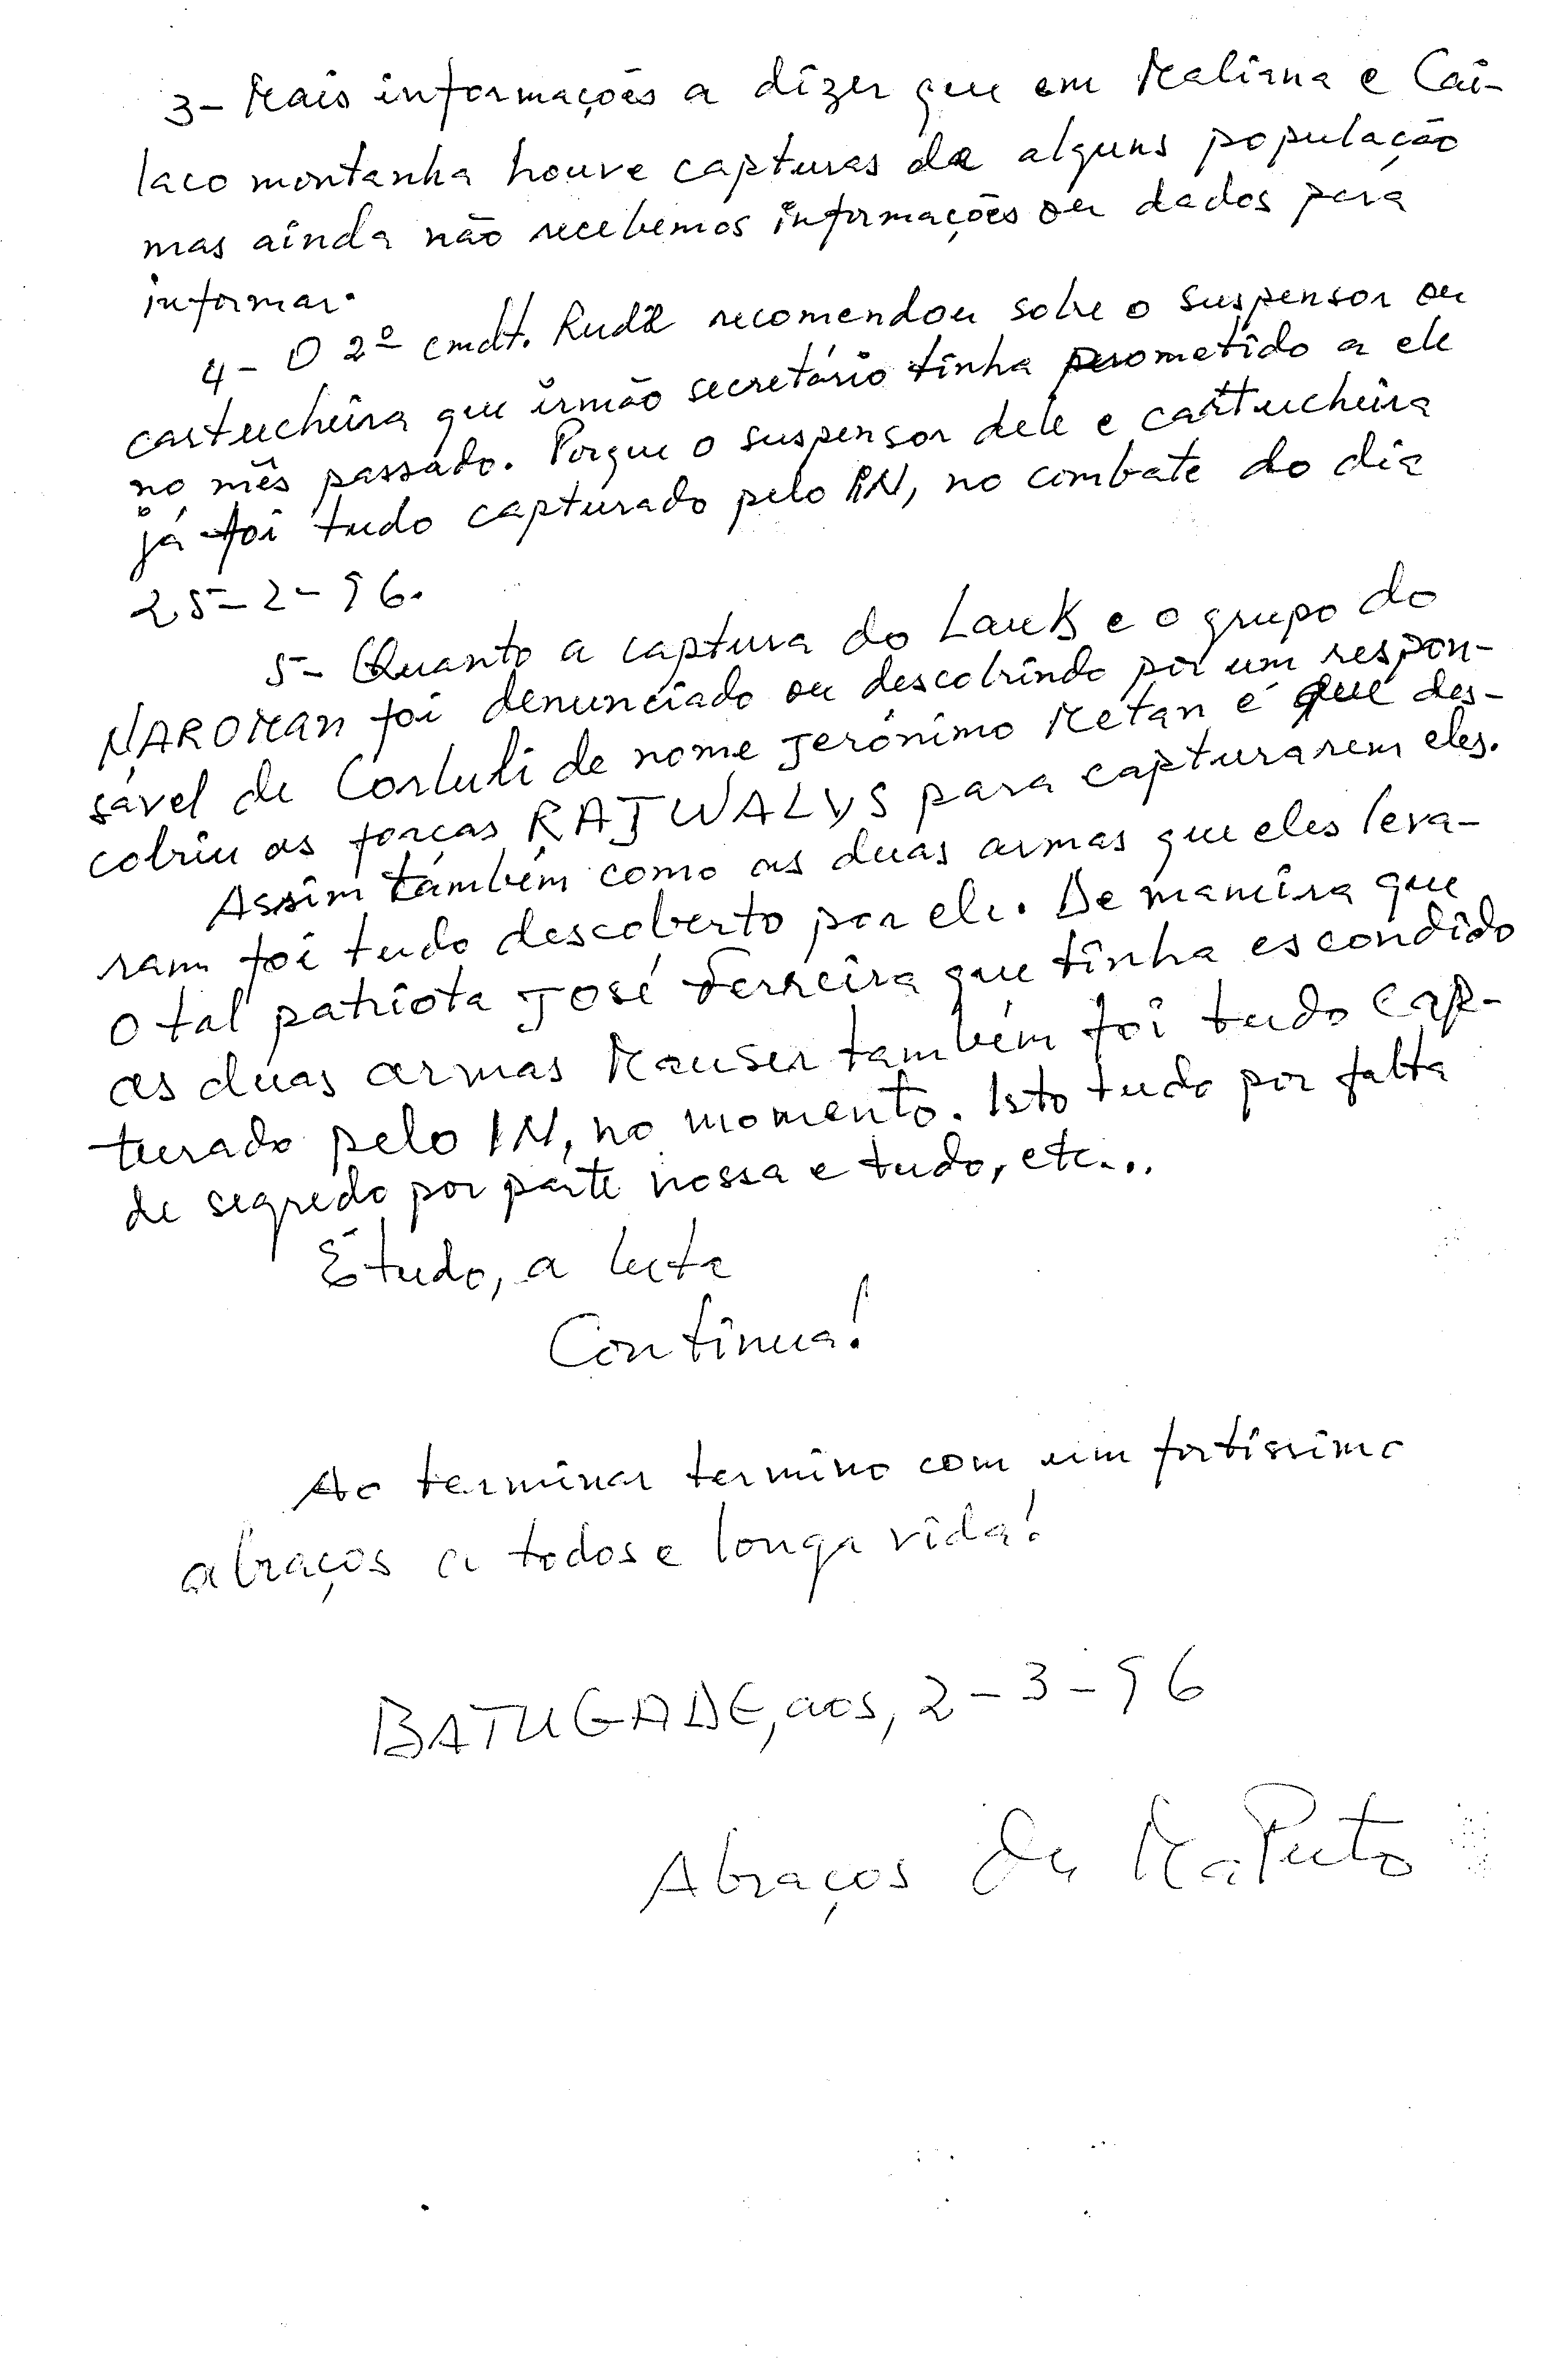 3- Mais informações a dizer que em Maliana e Cai-
laco montanha houve capturas de alguns população
mas ainda não recebemos informações ou dados para
informar.
4- O 2º cmdt. Rudl recomendou sobre o suspensor ou
cartucheira que irmão secretário tinha prometido a ele
no mês passado. Porque o suspensor dele e cartucheira
já foi tudo capturado pelo IN, no combate do dia
25-2-96.
5- Quanto a captura do Lauk e o grupo do
NAROMAN foi denunciado ou descobrindo por um respon-
sável de Corluli de nome Jerónimo Metan é que des-
cobriu as forças RAJWALVS para capturarem eles.
Assim também como as duas armas que eles leva-
ram foi tudo descoberto por ele. De maneira que
o tal patriota José Ferreira que tinha escondido
as duas armas Mauser também foi tudo cap-
turado pelo IN, no momento. Isto tudo por falta
de segredo por parte nossa e tudo, etc...
É tudo, a luta
Continua!
Ao terminar termino com um fortíssimo
abraços a todos e longa vida!
BATUGADE, aos, 2-3-96
Abraços de MaPuto